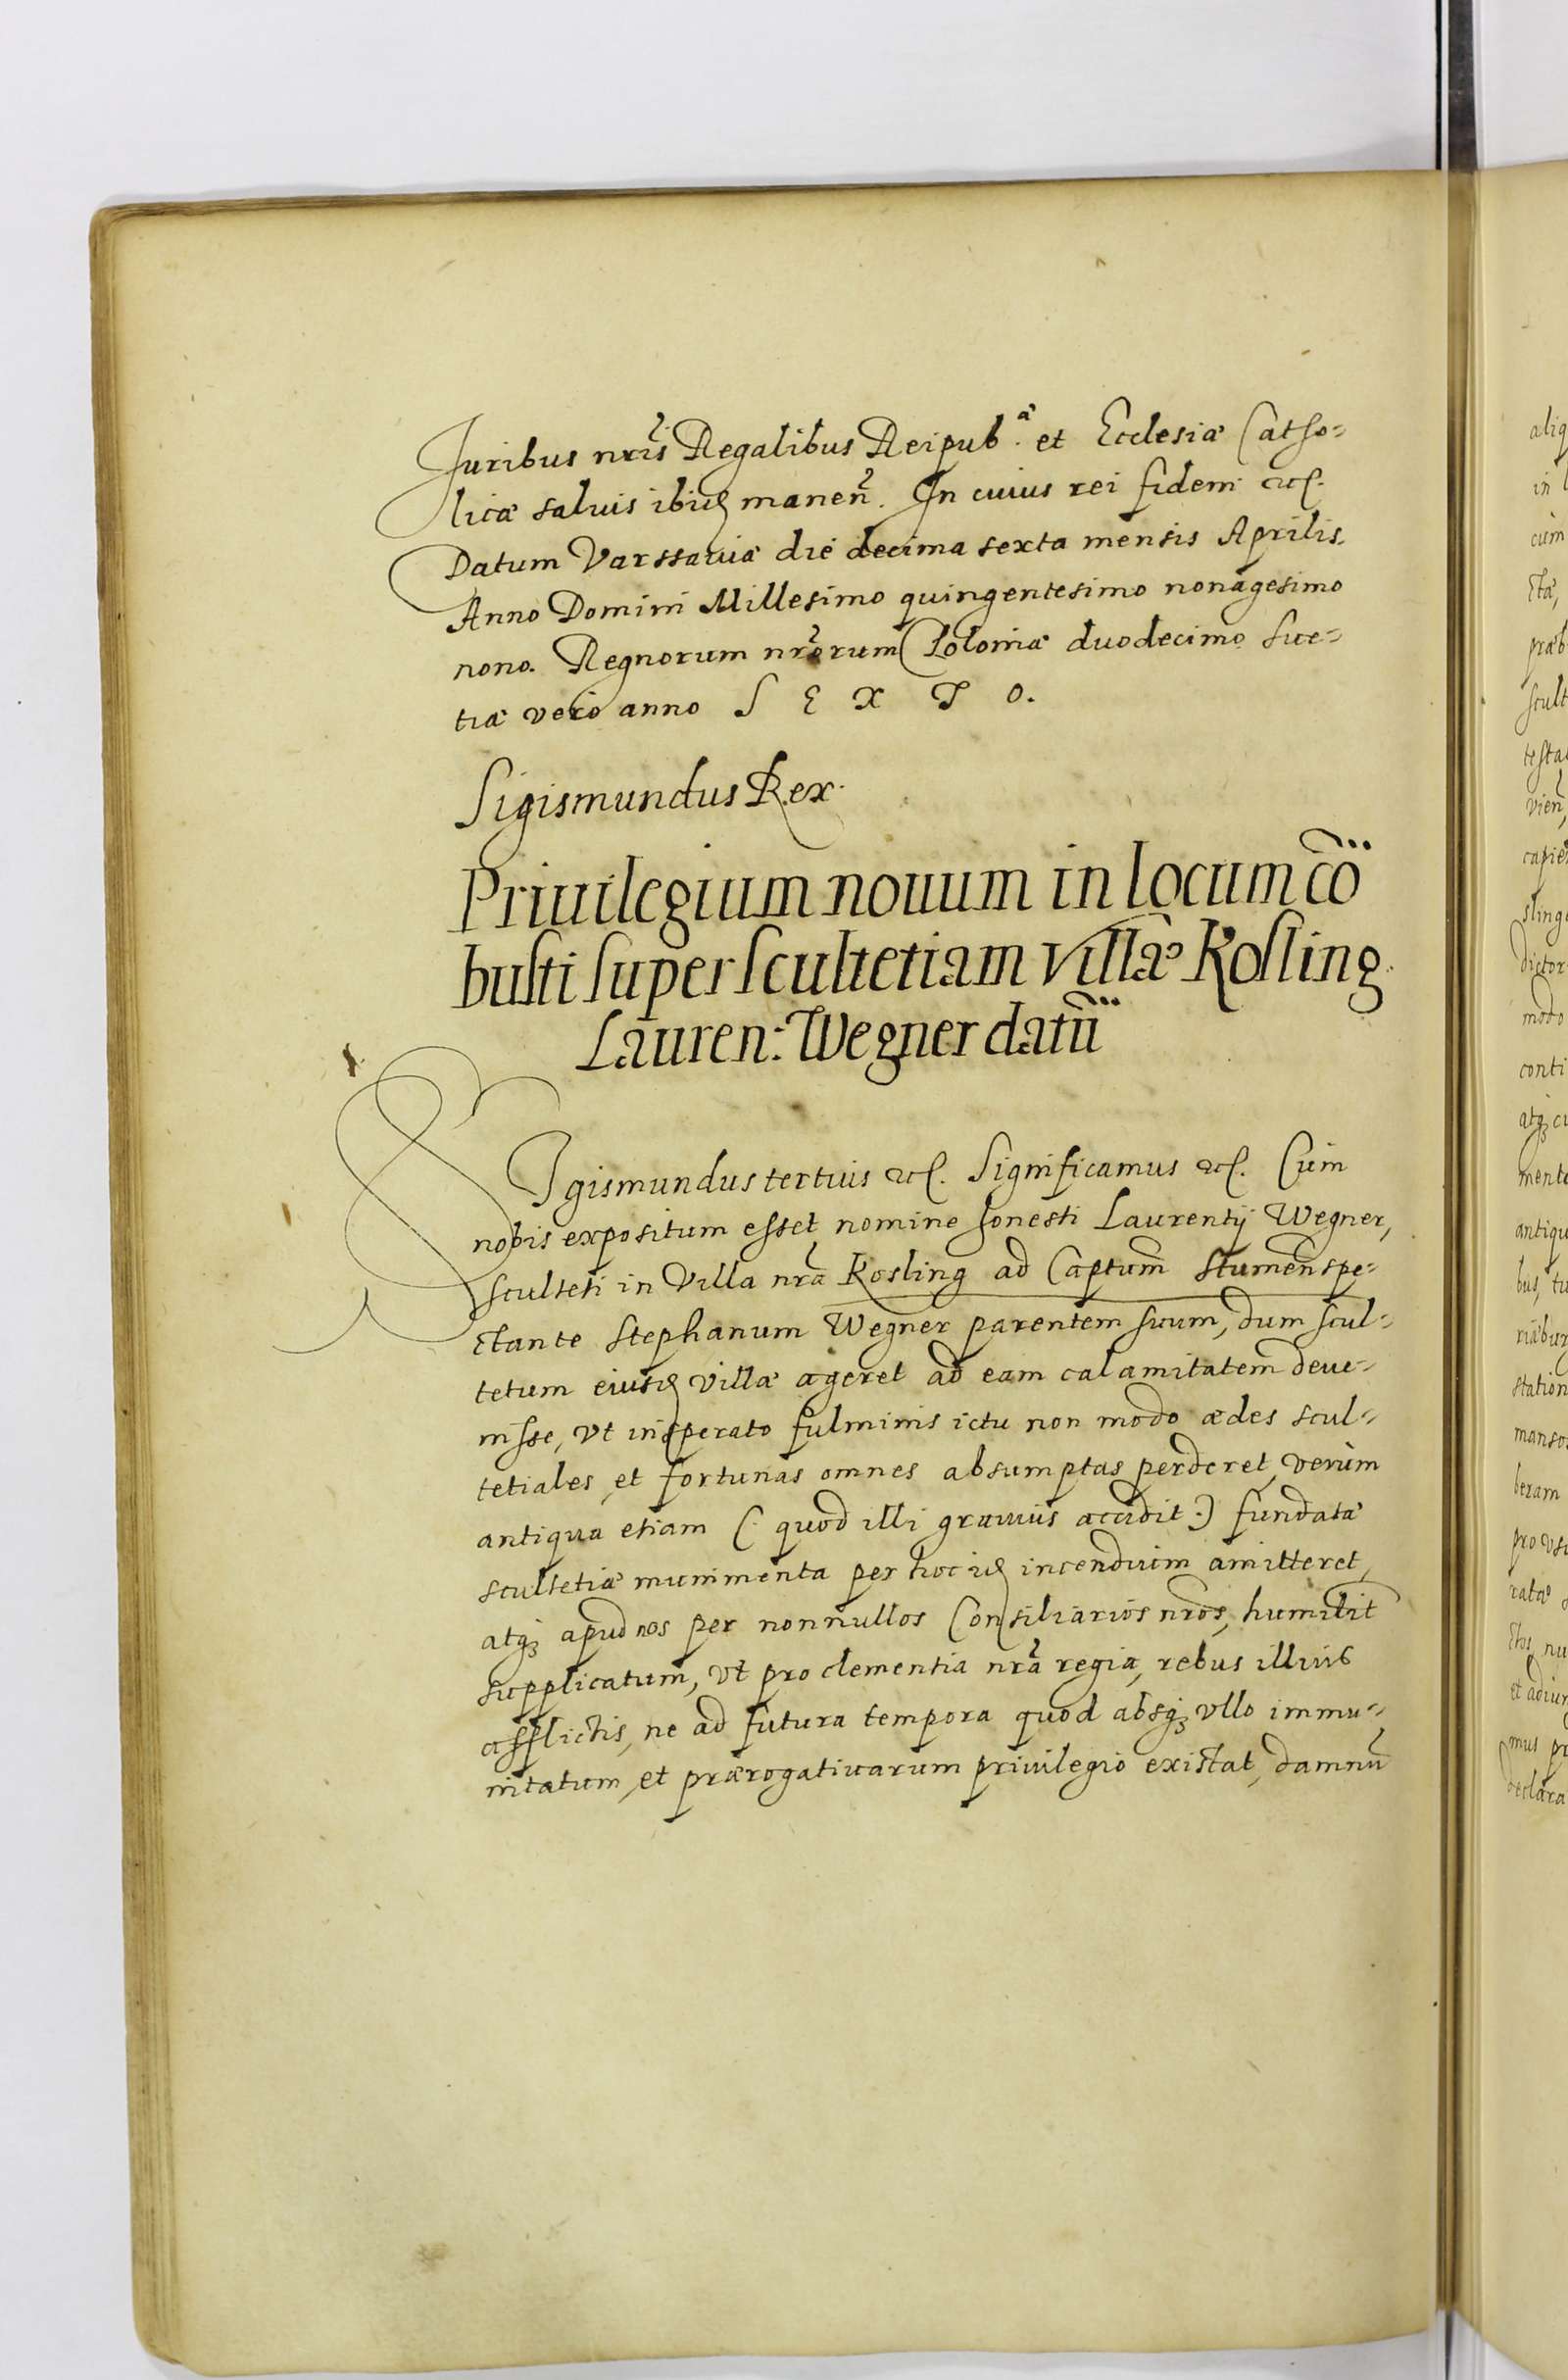 Juribus nr̃is Regalibus Reipub.ᵃᵉ et Ecclesiæ Catho-
licæ saluis ibid manen̄. In cuius rei fidem etc.
Datum Varssauiæ die decima sexta mensis Aprilis.
Anno Domini Millesimo quingentesimo nonagesimo
nono. Regnorum nr̃orum Poloniæ duodecimo Sue-
tiæ vero anno S E X T O.
Sigismundus Rex.
Priuilegium nouum in locum cõ
busti super scultetiam villæ Kosling
Lauren: Wegner datũ
Sigismundus tertius etc. Significamus etc. Cum
nobis expositum esset nomine honesti Laurentij Wegner,
sculteti in Villa nr̃a Kosling ad Captum̄ Stumen̄ spe-
ctante Stephanum Wegner parentem suum, dum scul-
tetum eiusd villæ ageret ad eam calamitatem deue-
nisse, vt insperato fulminis ictu non modo ædes scul-
tetiales, et fortunas omnes absumptas perderet, verùm
antiqua etiam (: quod illi grauius accidit :) fundatæ
scultetiæ munimenta per hoc id incendium amitteret,
atq; apud nos per nonnullos Consiliarios nr̃os, humilit̃
supplicatum, vt pro clementia nr̃a regia, rebus illius
afflictis, ne ad futura tempora quod absq; vllo immu-
nitatum, et prærogatiuarum priuilegio existat, damnũ
aliq
in
cùm
ctæ,
præb
scult
testa
vien̄,
capie
sling
dictor
modo
conti
atq; cu
mente
antiqu
bus, tu
riæbur
station
manso
beram
pro vs
ratæ
ctos, nu
et adiun
mus pr
declara